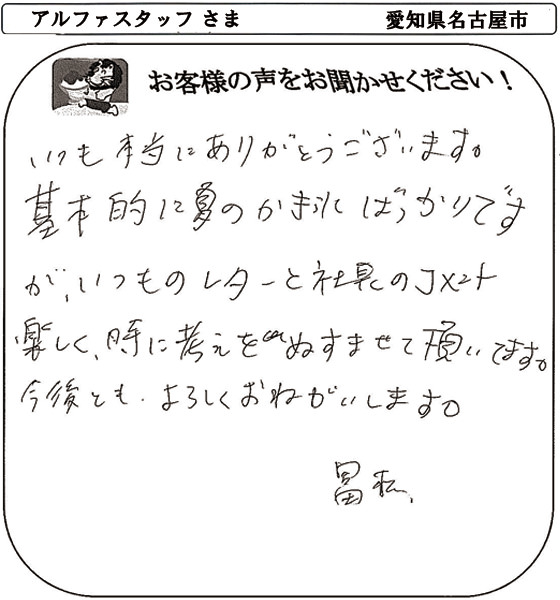 アルファスタッフ さま 愛知県名古屋市
お客様の声をお聞かせください！
いつも本当にありがとうございます。
基本的に夏のかき氷ばっかりです
が、いつものレターと社長のコメント
楽しく、時に考えをぬすませて頂いてます。
今後とも、よろしくおねがいします。